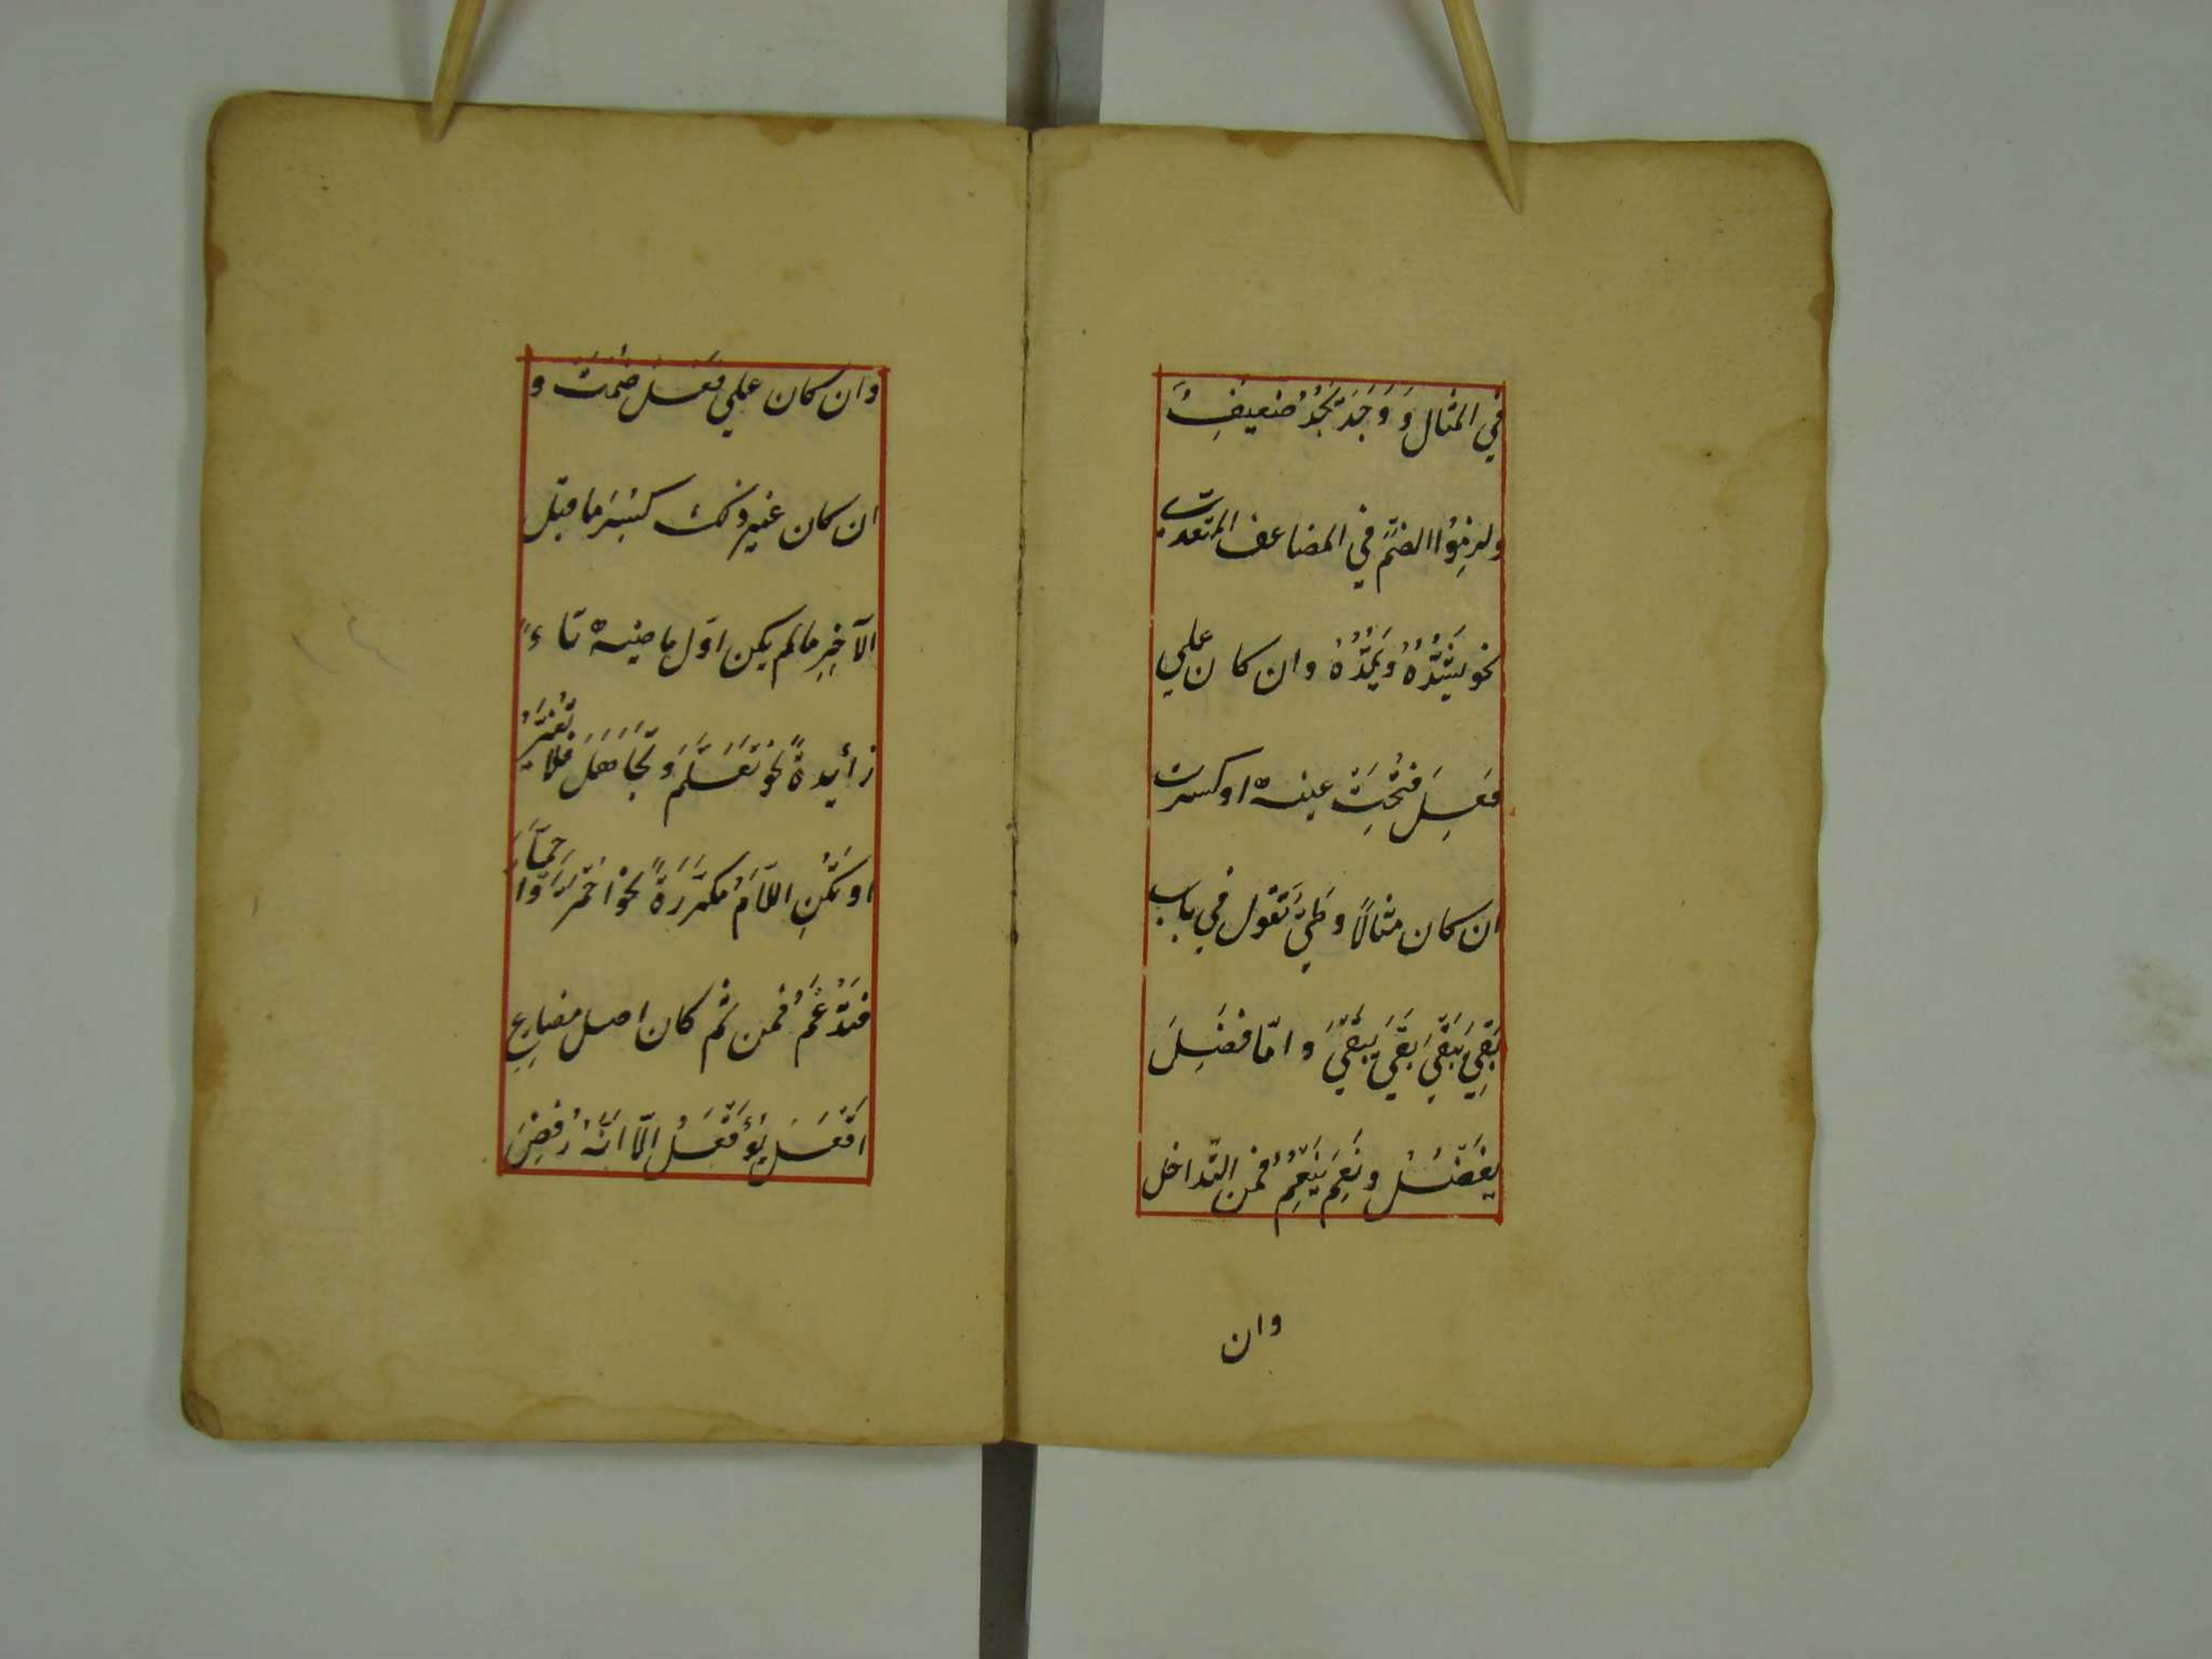 في المثال وَ وَجَدَ يَجُدُ ضعيفٌ
ولزمُوا الضمّ في المضاعف المتعدّي
نحو يشُدُّهُ وَيَمُدُّهُ وان كان علي
فعِلَ فُتِحَتْ عينه او كسرت
ان كان مثالًا وطيّ تقول في باب
بَقِيَ يَبْقَي بَقَي يَبْقَي وامّا فَضِلَ
يفضُلُ ونَعِمَ يَنْعُمُ فمن التّداخل
وان
وان كان علي فَعُلَ ضُمَّتْ و
ان كان غير ذلك كُسِرَ ما قبل
الآخِرِ ما لم يكن اوّل ماضيه تاءً
زأيدةً نحو تَعَلَّمَ وَتَجَاهَلَ فلا تُغَيَّرُ
او تَكُنِ اللَّامُ مكرَّرَةً نحوْ احْمَرَّ وَاحْمَارَّ
فتُدْغَمُ فمن ثَمّ كان اصل مضارعِ
اَفْعَلَ يُؤَفْعَلُ الّا اَنَّهُ رُفِضَ